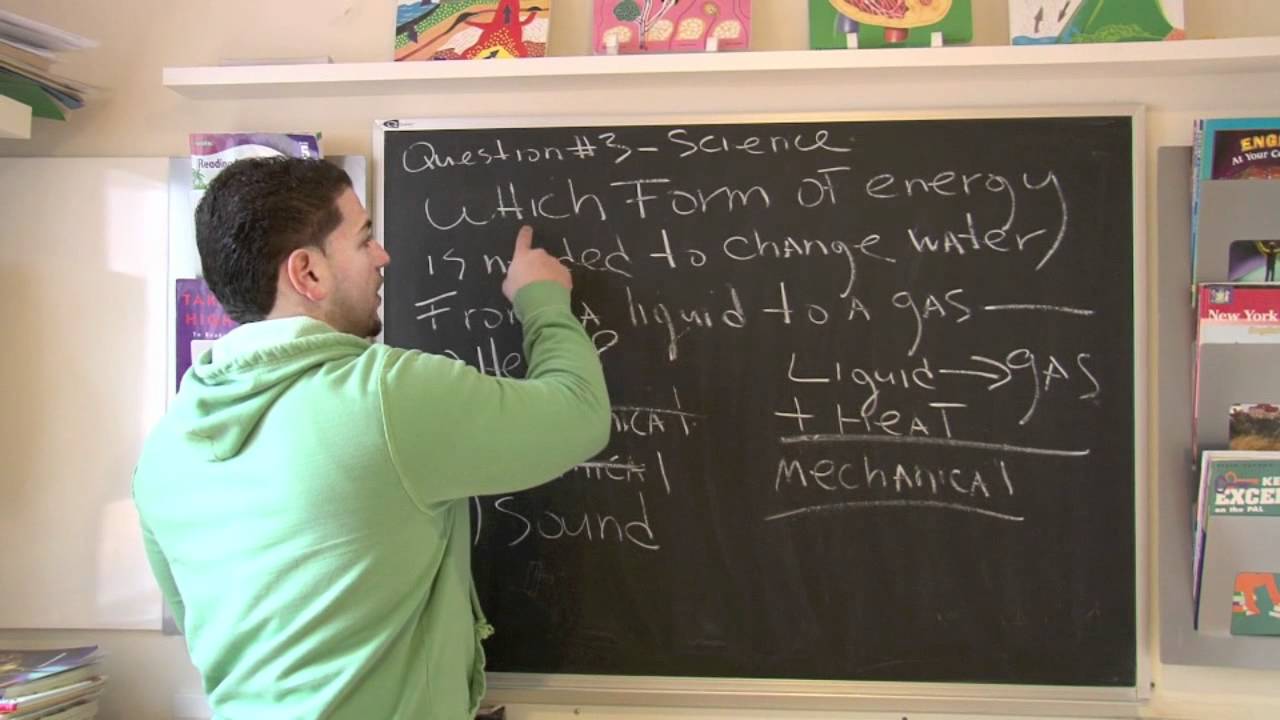 Question #3 - Science
Which Form of energy
is needed to change water
From a liquid to a gas
Liquid → gas
+ Heat
Mechanical
Sound
Reading
5
TAK
HIGH
ENG
At Your Co
New York
KE
EXCEL
on the PAL